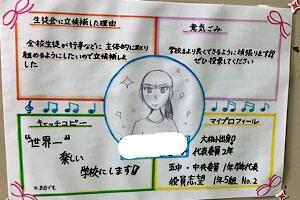 生徒会に立候補した理由
全校生徒が行事などに主体的に取り
組めるようにしたいので立候補しま
した
意気ごみ
学校をより良くできるように頑張ります!!
ぜひ投票してください
キャッチコピー
"世界一"
楽しい
学校にします!
マイプロフィール
代表委員2年
五中・中央委員 1年学年代表
役員志望 1年5組 No.2